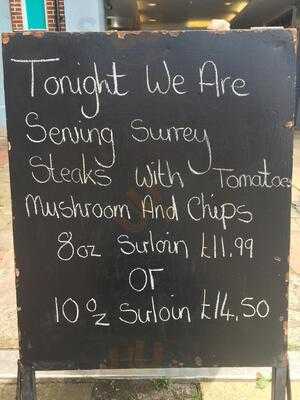 Tonight We Are
Serving Surrey
Steaks With Tomatoes
Mushroom And Chips
8oz Surloin £11.99
Or
10oz Surloin £14.50